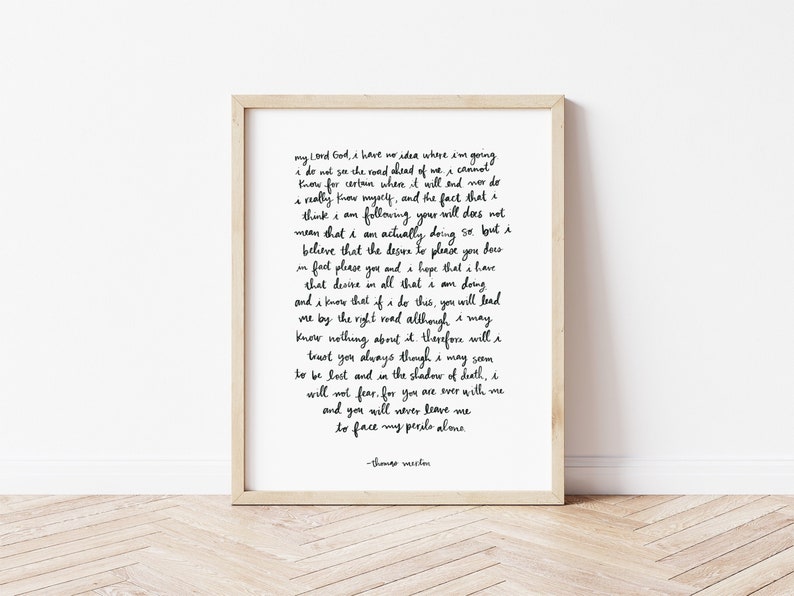 my Lord God, i have no idea where i'm going.
i do not see the road ahead of me. i cannot
know for certain where it will end nor do
i really know myself, and the fact that i
think i am following your will does not
mean that i am actually doing so. but i
believe that the desire to please you does
in fact please you and i hope that i have
that desire in all that i am doing.
and i know that if i do this, you will lead
me by the right road although i may
know nothing about it. therefore will i
trust you always though i may seem
to be lost and in the shadow of death, i
will not fear, for you are ever with me
and you will never leave me
to face my perils alone.
-thomas merton